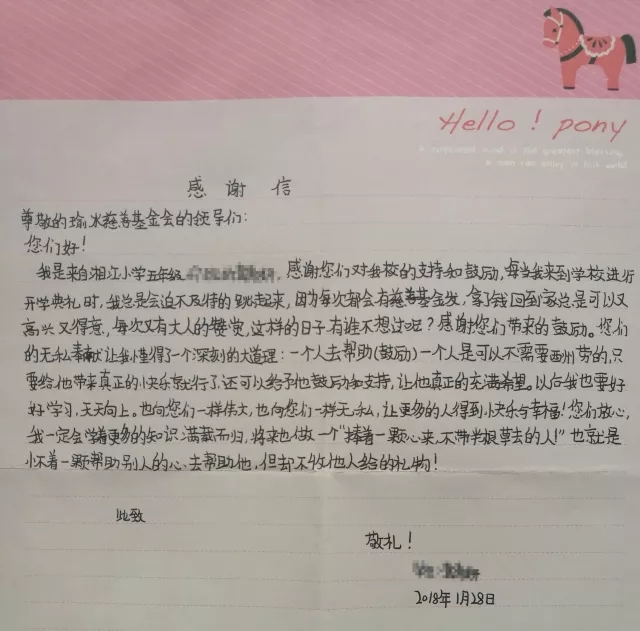 Hello ! pony
感谢信
尊敬的瑜水慈善基金会的领导们:
您们好!
我是来自湘江小学五年级 感谢您们对我校的支持和鼓励,每当我来到学校进行
开学典礼时,我总是会迫不及待的跳起来,因为每次都会有慈善基金发,拿了钱回到家总是可以又
高兴又得意,每次又有大人的赞赏,这样的日子有谁不想过呢?感谢您们带来的鼓励。您们
的无私奉献让我懂得了一个深刻的大道理:一个人去帮助(鼓励)一个人是可以不需要酬劳的,只
要给他带来真正的快乐就行了,还可以给予他鼓励和支持,让他真正的充满希望。以后我也要好
好学习,天天向上。也向您们一样伟大,也向您们一样无私,让更多的人得到快乐与幸福!您们放心,
我一定会学着更多的知识满载而归,将来也做一个“捧着一颗心来,不带半根草去的人!”也就是
怀着一颗帮助别人的心去帮助他,但却不收他人给的礼物!
此致
敬礼!
2018年1月28日